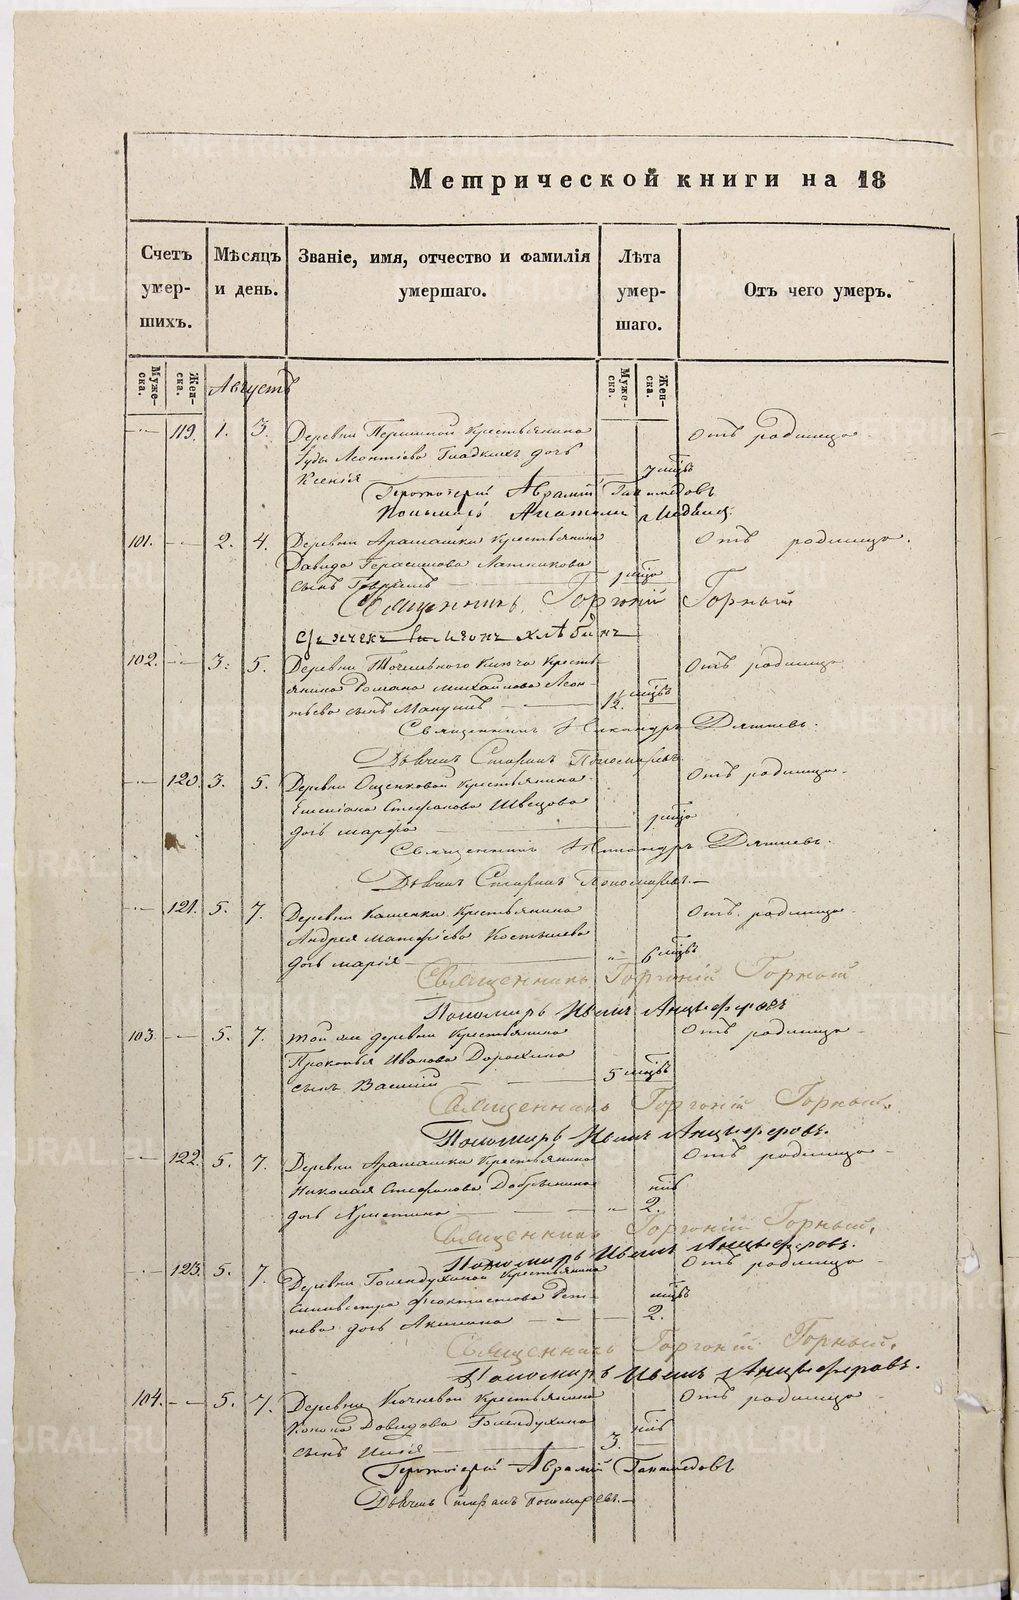 Метрической книги на 18
Счетъ умер-шихъ.
Мѣсяцъ и день.
Званіе, имя, отчество и фамилія умершаго.
Лѣта умер-шаго.
Отъ чего умеръ.
Муже-ска.
Жен-ска.
Августъ
Муже-ска.
Жен-ска.
119. 1. 3. Деревни Першиной крестьянина Отъ родимца
Іуды Леонтіева Гладкихъ дочь
Ксенія 7 мцвъ
Протоіерей Аврамій
Пономарь
101. 2. 4. Деревни Арамашки крестьянина Отъ родимца.
Давида Герасимова Латникова
сынъ Гавріилъ 1 мца
Священникъ Горгоній Горный
102. 3. 5. Деревни Точильного Ключа кресть- Отъ родимца
янина Романа Михайлова Леон-
тьева сынъ 1½ мцвъ
Священникъ Никаноръ
Дьячекъ Стефанъ Пономаревъ
120. 3. 5. Деревни Ощепковой крестьянина Отъ родимца.
Емеліана Стефанова Швецова
дочь Марфа 1 мца
Священникъ Никаноръ
Дьячекъ Стефанъ Пономаревъ.
121. 5. 7. Деревни крестьянина Отъ родимца
Андрея Матфіева Костылева
дочь Марія 6 мцвъ
Священникъ Горгоній Горный
Пономарь Иванъ Анцыферовъ
103. 5. 7. Той же деревни крестьянина Отъ родимца
Прокопья Иванова Дорохина
сынъ Василій 5 мцвъ
Священникъ Горгоній Горный.
Пономарь Иванъ Анцыферовъ.
122. 5. 7. Деревни Арамашки крестьянина Отъ родимца
Николая Стефанова Добрынина
дочь Христина 2.
Священникъ Горгоній Горный.
Пономарь Иванъ Анцыферовъ.
123. 5. 7. Деревни Голендухиной крестьянина Отъ родимца
Силивестра Феоктистова Рет-
нева дочь Акилина 2. мцвъ
Священникъ Горгоній Горный.
Пономарь Иванъ Анцыферовъ.
104. 5. 7. Деревни Ключевой крестьянина Отъ родимца
Конона Давидова Голендухина
сынъ Илія 3.
Протоіерей Аврамій
Дьячекъ Стефанъ Пономаревъ.
METRIKI.GASO-URAL.RU